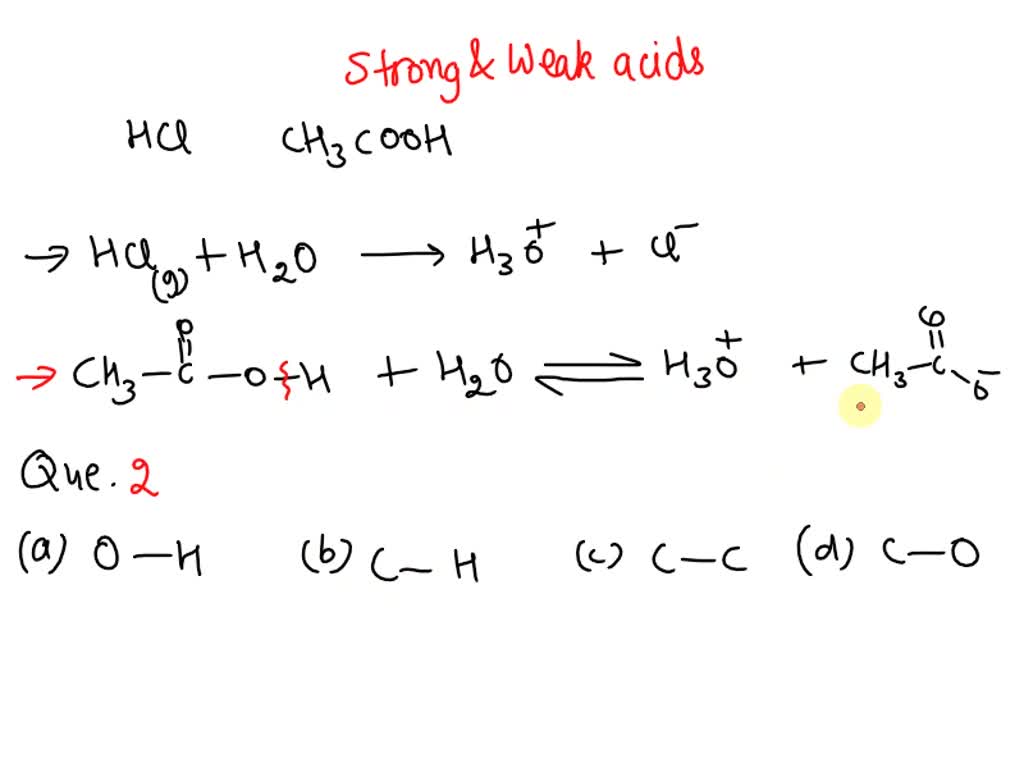 Strong & Weak acids
HCl CH₃COOH
→ HCl(g) + H₂O ⟶ H₃O⁺ + Cl⁻
O O
|| ||
→ CH₃—C—O—H + H₂O ⇌ H₃O⁺ + CH₃—C—O⁻
Que. 2
(a) O—H (b) C—H (c) C—C (d) C—O